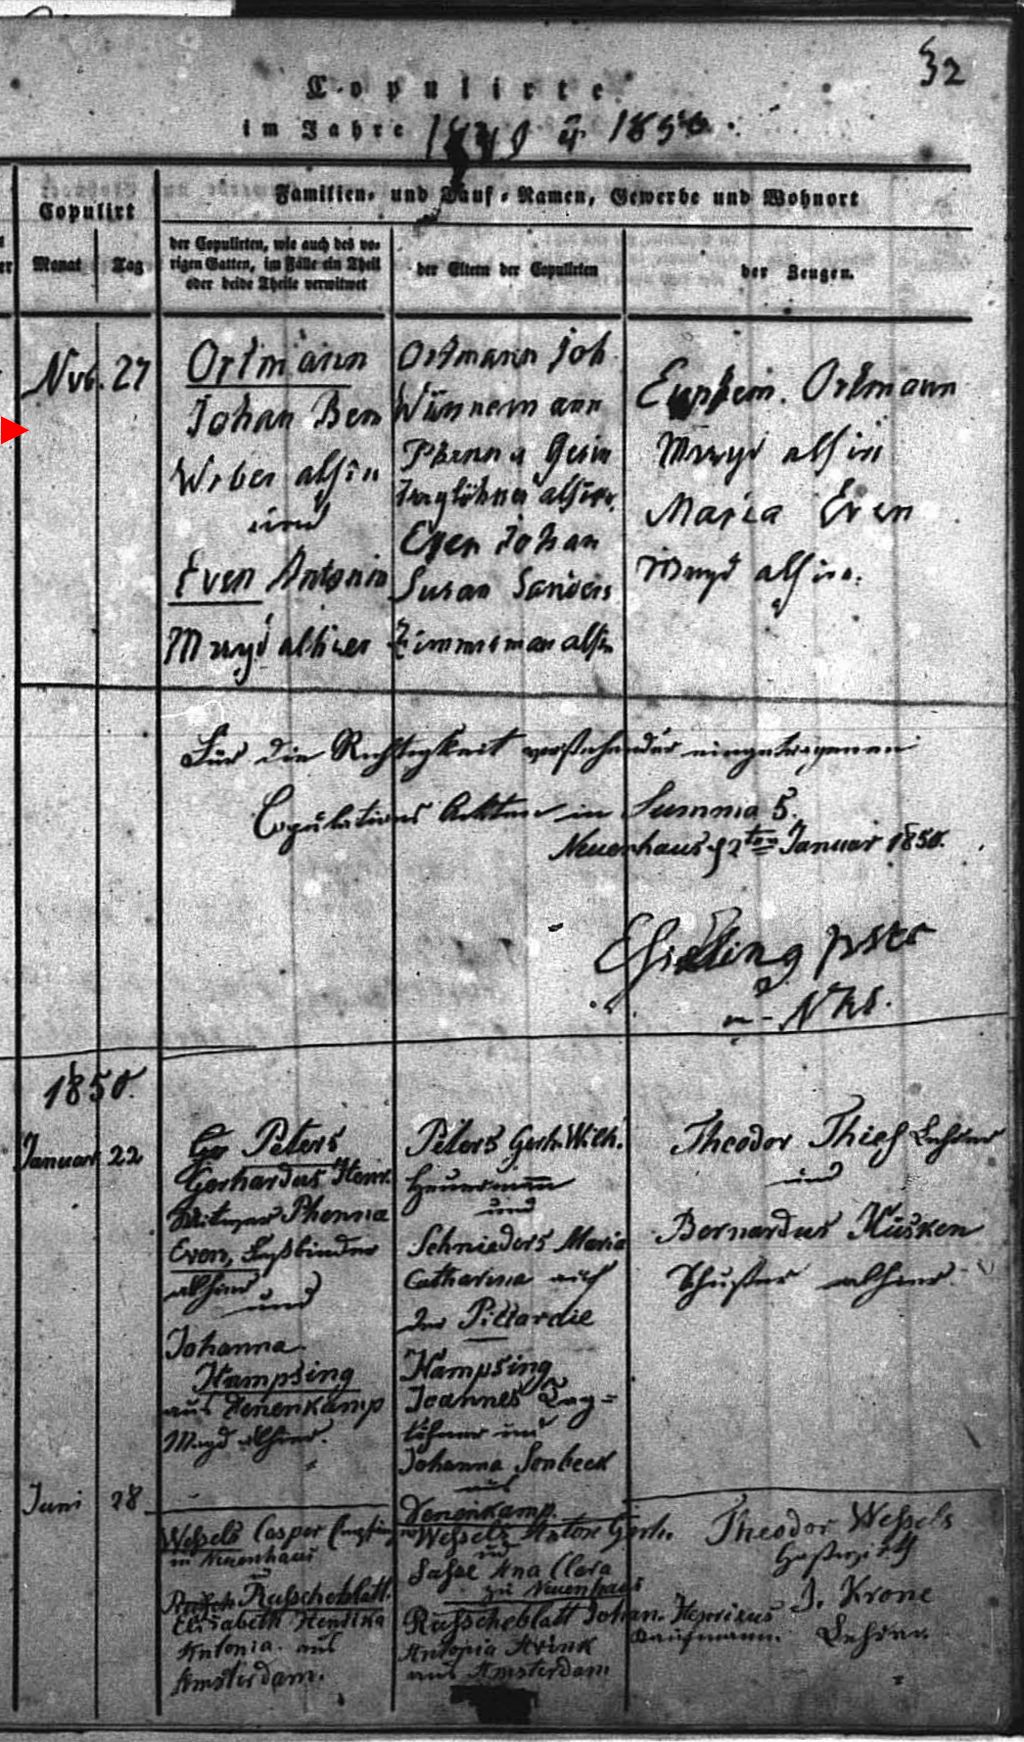 32
Copulirte
im Jahre 1849 u 1850.
Copulirt
Monat
Tag
Familien- und Tauf-Namen, Gewerbe und Wohnort
der Copulirten, wie auch des vo-
rigen Gatten, im Falle ein Theil
oder beide Theile verwitwet
der Eltern der Copulirten
der Zeugen.
Nvb. 27
Ortmann
Johan Bern
Weber alhier
und
Even Antonia
Magd alhier
Ortmann Joh
Wünnemann
Phenna Gesin
Taglöhner alhier
Even Johan
Susan Sanders
Zimmerman alhier
Ortmann
Magd alhier
Maria Even
Magd alhier.
Für die Richtigkeit vorstehender eingetragenen
Copulations Akten in Summa 5.
Neuenhaus d 2ten Januar 1850.
pstr
Nhs.
1850.
Januar 22
Ge Peters
Gerhardus Henr.
Witwer Phenna
Even, Faßbinder
alhier
und
Johanna
Hampsing
aus Denenkamp
Magd alhier.
Peters Gerh. Wilh.
Heuermann
und
Schnieders Maria
Catharina auf
der Piccardie
Hampsing
Joannes Tag=
löhner und
Johanna Sonbeck
aus
Denenkamp.
Theodor Thies Lehrer
und
Bernardus Küsken
Schuster alhier
Juni 28
Wessels Casper
in Neuenhaus
Russcheblatt
Elisabeth Henrika
Antonia aus
Amsterdam.
Wessels Anton Gerh.
und
Sasse Ana Clara
zu Neuenhaus
Russcheblatt Johan. Henricus
Kaufmann.
Antonia Arink
aus Amsterdam
Theodor Wessels
J. Krone
Lehrer